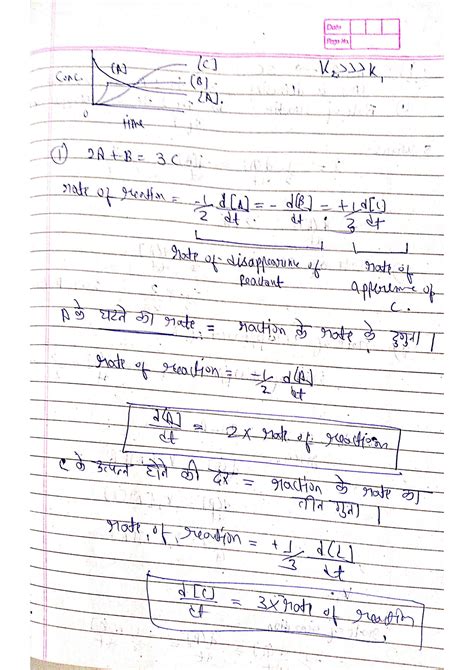 Date
Page No.
[C]
[A]
[B]
[A].
Conc.
K₂>>>K₁
0
time
① 2A + B = 3C
rate of reaction = -1/2 d[A]/dt = - d[B]/dt = +1/3 d[C]/dt
rate of disappearance of reactant
rate of apperence of C.
A के घटने का rate = raction के rate के दुगुना।
rate of reaction = -1/2 d[A]/dt
d[A]/dt = 2 x rate of reaction
C के उत्पन्न होने की दर = raction के rate का
तीन गुना।
rate of reaction = +1/3 d[C]/dt
d[C]/dt = 3x rate of reaction